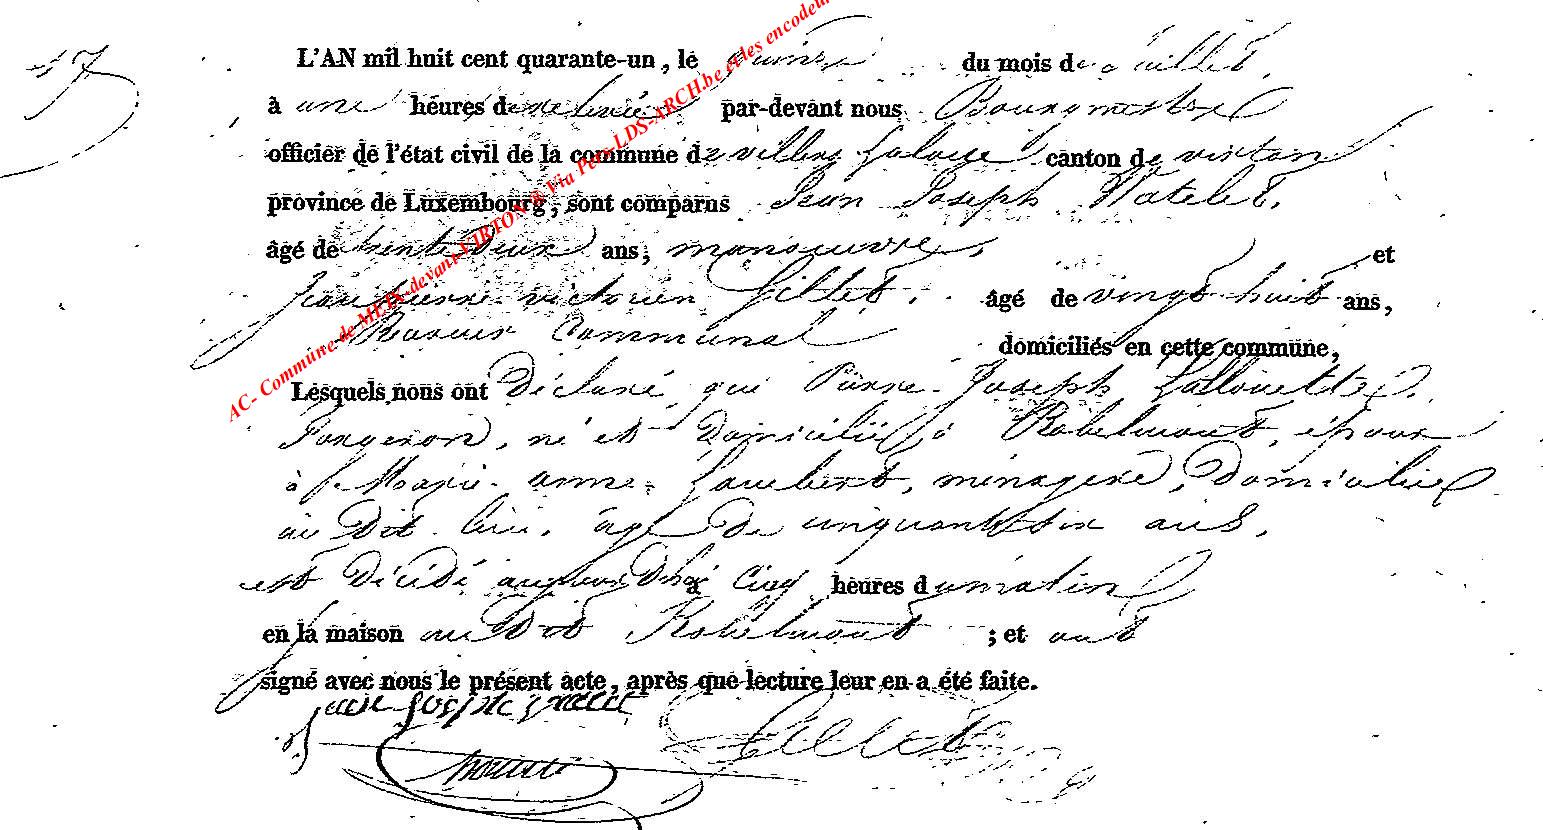 17
L'AN mil huit cent quarante-un, le quinze du mois de juillet,
à une heures de relevée par-devant nous Bourgmestre
officier de l'état civil de la commune de villers laloue canton de virton
province de Luxembourg, sont comparus Jean Joseph Watelet,
âgé de trente deux ans, manoeuvre, et
Jean pierre victorien Gillet, âgé de vingt huit ans,
communal domiciliés en cette commune,
Lesquels nous ont Déclaré que Pierre Joseph Lallouette,
Forgeron, né et Domicilié à Robelmont, époux
à Marie anne Lambert, ménagère, Domiciliée
au Dit lieu, âgé De cinquante six ans,
est Décédé aujourd'hui à Cinq heures du matin
en la maison au Dit Robelmont ; et ont
signé avec nous le présent acte, après que lecture leur en a été faite.
Jean Joseph Watelet Gillet
AC- Commune de MEIX-devant-VIRTON Via Pers-LDS-ARCH.be et les encodeu